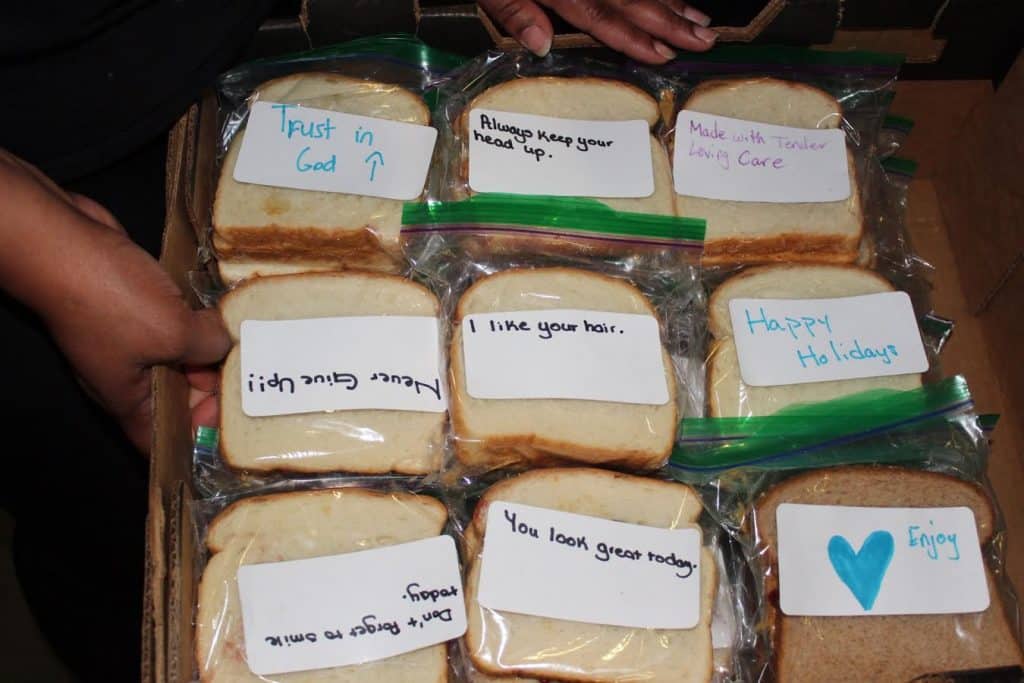 Trust in
God ↑
Always keep your
head up.
Made with Tender
Loving Care
Never Give Up!!
I like your hair.
Happy
Holidays
Don't forget to smile
today.
You look great today.
Enjoy